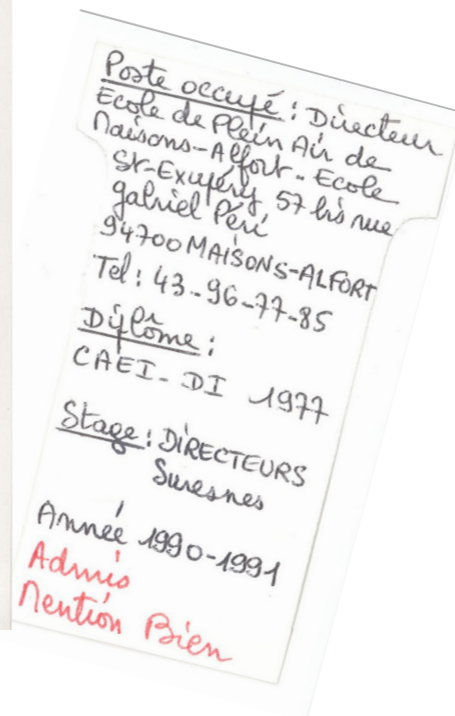 Poste occupé : Directeur
Ecole de Plein Air de
Maisons-Alfort - Ecole
St-Exupéry 57 bis rue
gabriel Péri
94700 MAISONS-ALFORT
Tel : 43-96-77-85
Diplôme :
CAEI - DI 1977
Stage : DIRECTEURS
Suresnes
Année 1990-1991
Admis
Mention Bien